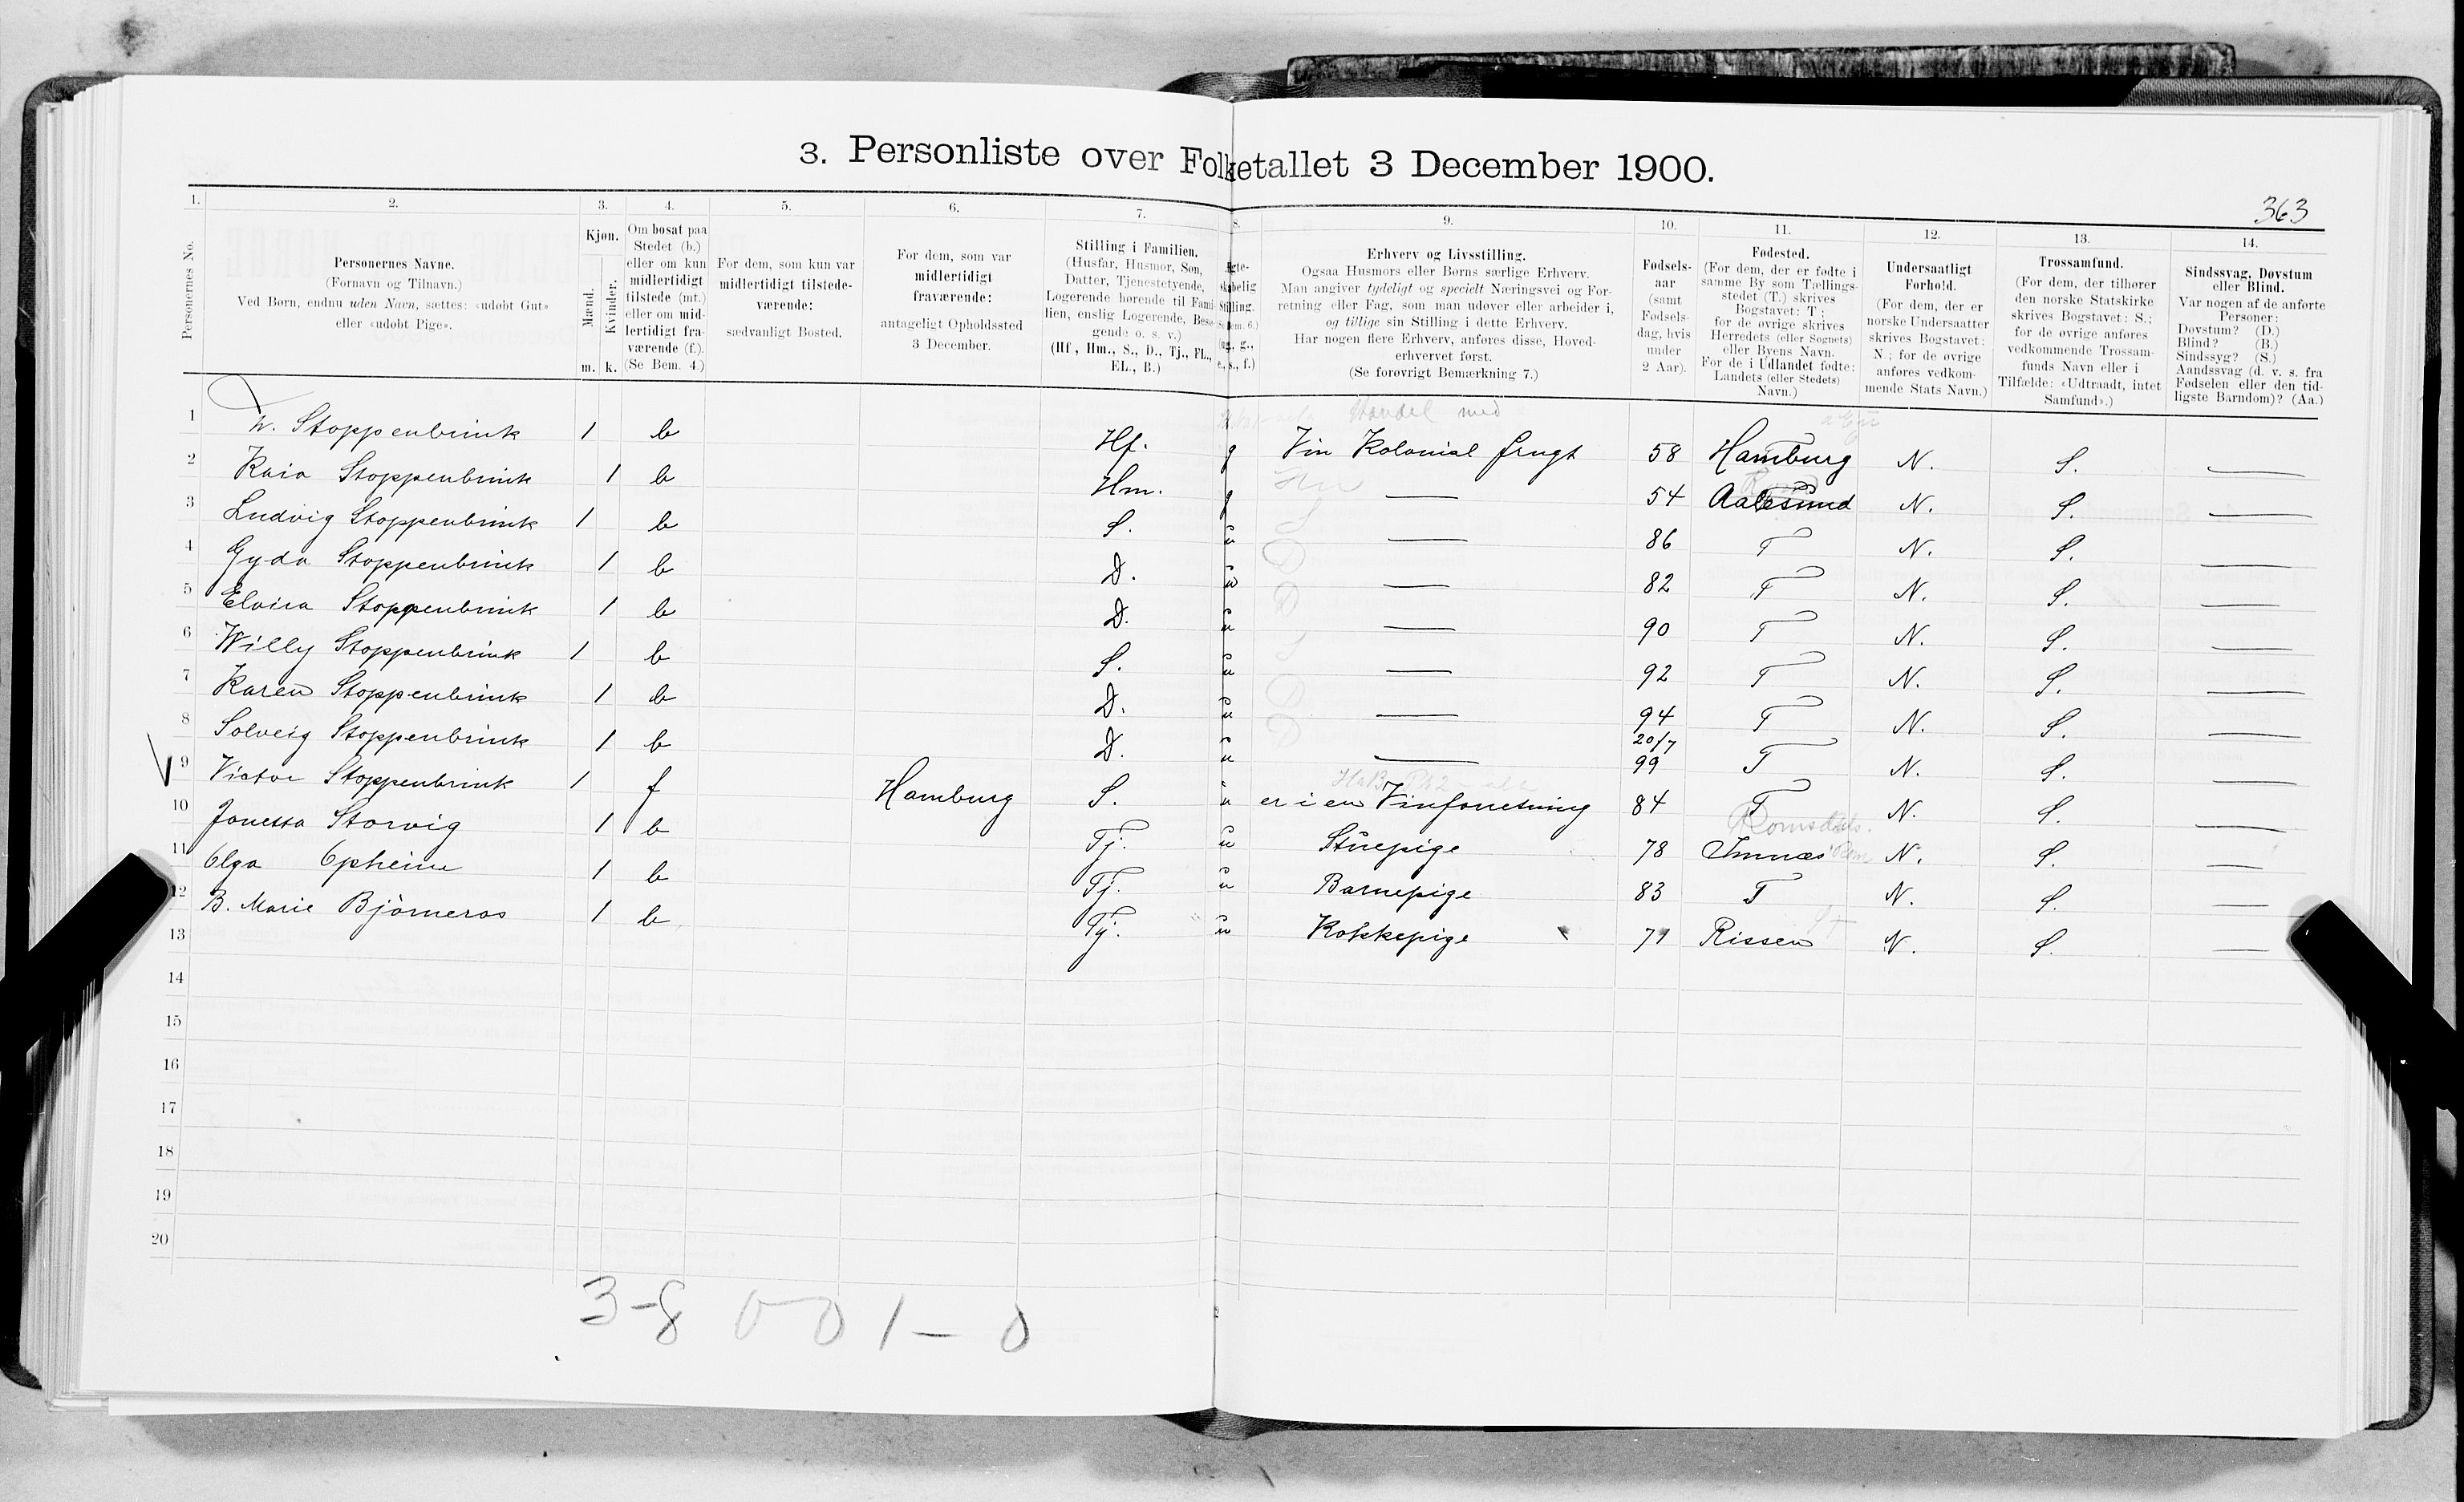 3. Personliste over Folketallet 3 December 1900.
363
1. 2. 3. 4. 5. 6. 7. 8. 9. 10. 11. 12. 13. 14.
Personernes No.
Personernes Navne.
(Fornavn og Tilnavn.)
Ved Børn, endnu uden Navn, sættes: «udøbt Gut»
eller «udøbt Pige».
Kjøn.
Mænd.
Kvinder.
m. k.
Om bosat paa
Stedet (b.)
eller om kun
midlertidigt
tilstede (mt.)
eller om mid-
lertidigt fra-
værende (f.).
(Se Bem. 4.)
For dem, som kun var
midlertidigt tilstede-
værende:
sædvanligt Bosted.
For dem, som var
midlertidigt
fraværende:
antageligt Opholdssted
3 December.
Stilling i Familien.
(Husfar, Husmor, Søn,
Datter, Tjenestetyende,
Logerende hørende til Fami-
lien, enslig Logerende, Besø-
gende o. s. v.)
(Hf., Hm., S., D., Tj., FL.,
EL., B.)
Ægte-
skabelig
Stilling.
(Se Bem. 6.)
(ug., g.,
e., s., f.)
Erhverv og Livsstilling.
Ogsaa Husmors eller Børns særlige Erhverv.
Man angiver tydeligt og specielt Næringsvei og For-
retning eller Fag, som man udøver eller arbeider i,
og tillige sin Stilling i dette Erhverv.
Har nogen flere Erhverv, anføres disse, Hoved-
erhvervet først.
(Se forøvrigt Bemærkning 7.)
Fødsels-
aar
(samt
Fødsels-
dag, hvis
under
2 Aar).
Fødested.
(For dem, der er fødte i
samme By som Tællings-
stedet (T.) skrives
Bogstavet: T;
for de øvrige skrives
Herredets (eller Sognets)
eller Byens Navn.
For de i Udlandet fødte:
Landets (eller Stedets)
Navn.)
Undersaatligt
Forhold.
(For dem, der er
norske Undersaatter
skrives Bogstavet:
N.; for de øvrige
anføres vedkom-
mende Stats Navn.)
Trossamfund.
(For dem, der tilhører
den norske Statskirke
skrives Bogstavet: S.;
for de øvrige anføres
vedkommende Trossam-
funds Navn eller i
Tilfælde: «Udtraadt, intet
Samfund».)
Sindssvag, Døvstum
eller Blind.
Var nogen af de anførte
Personer:
Døvstum? (D.)
Blind? (B.)
Sindssyg? (S.)
Aandssvag (d. v. s. fra
Fødselen eller den tid-
ligste Barndom)? (Aa.)
Handel med
1 W. Stoppenbrink 1 b Hf. g Vin Kolonial frugt 58 Hamburg N. S. —
2 Kaia Stoppenbrink 1 b Hm. g — 54 Aalesund N. S. —
3 Ludvig Stoppenbrink 1 b S. u — 86 T N. S. —
4 Gyda Stoppenbrink 1 b D. u — 82 T N. S. —
5 Elvira Stoppenbrink 1 b D. u — 90 T N. S. —
6 Willy Stoppenbrink 1 b S. u — 92 T N. S. —
7 Karen Stoppenbrink 1 b D. u — 94 T N. S. —
8 Solveig Stoppenbrink 1 b D. u — 20/7 99 T N. S. —
9 Victor Stoppenbrink 1 f Hamburg S. u er i en Vinforretning 84 T N. S. —
Romsdals.
10 Janetta Storvig 1 b Tj. u Stuepige 78 N. S. —
11 Olga Opheim 1 b Tj. u Barnepige 83 T N. S. —
12 B. Marie Björneras 1 b Tj. u Kokkepige 71 Rissen N. S. —
13
14
15
16
17
18
19
20
3-8 0-0 1-0